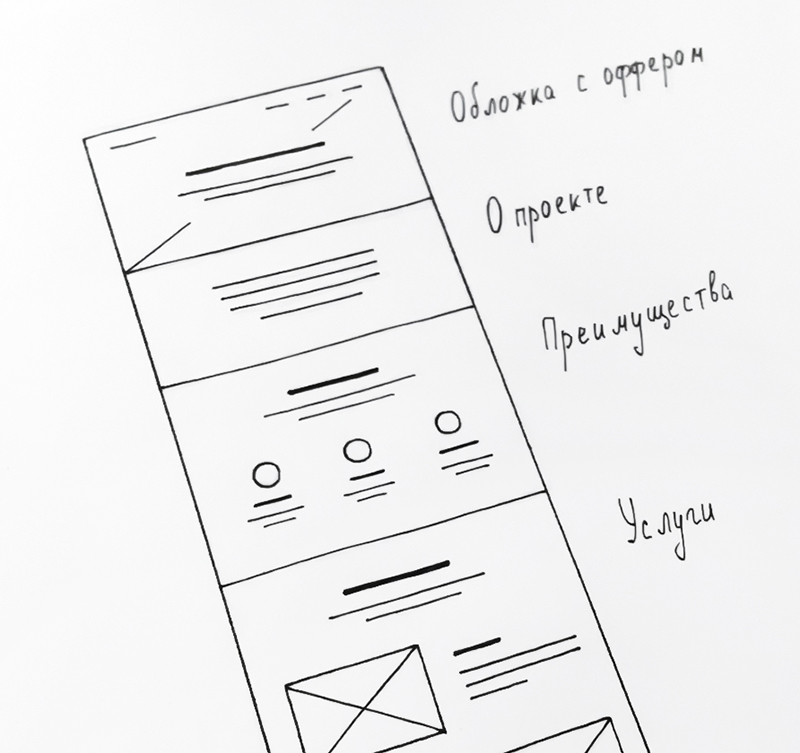 Обложка с оффером
О проекте
Преимущества
Услуги